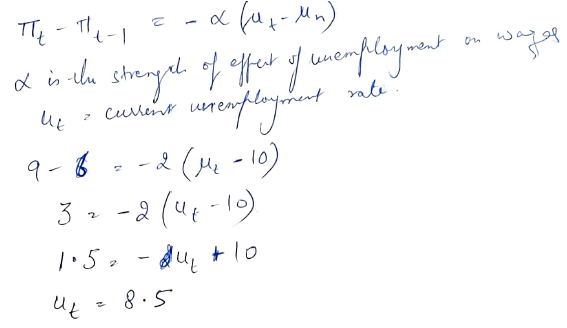 πt - πt-1 = - α (ut - un)
α is the strength of effect of unemployment on wages
ut = current unemployment rate.
9 - 6 = -2 (ut - 10)
3 = -2 (ut - 10)
1.5 = - ut + 10
ut = 8.5